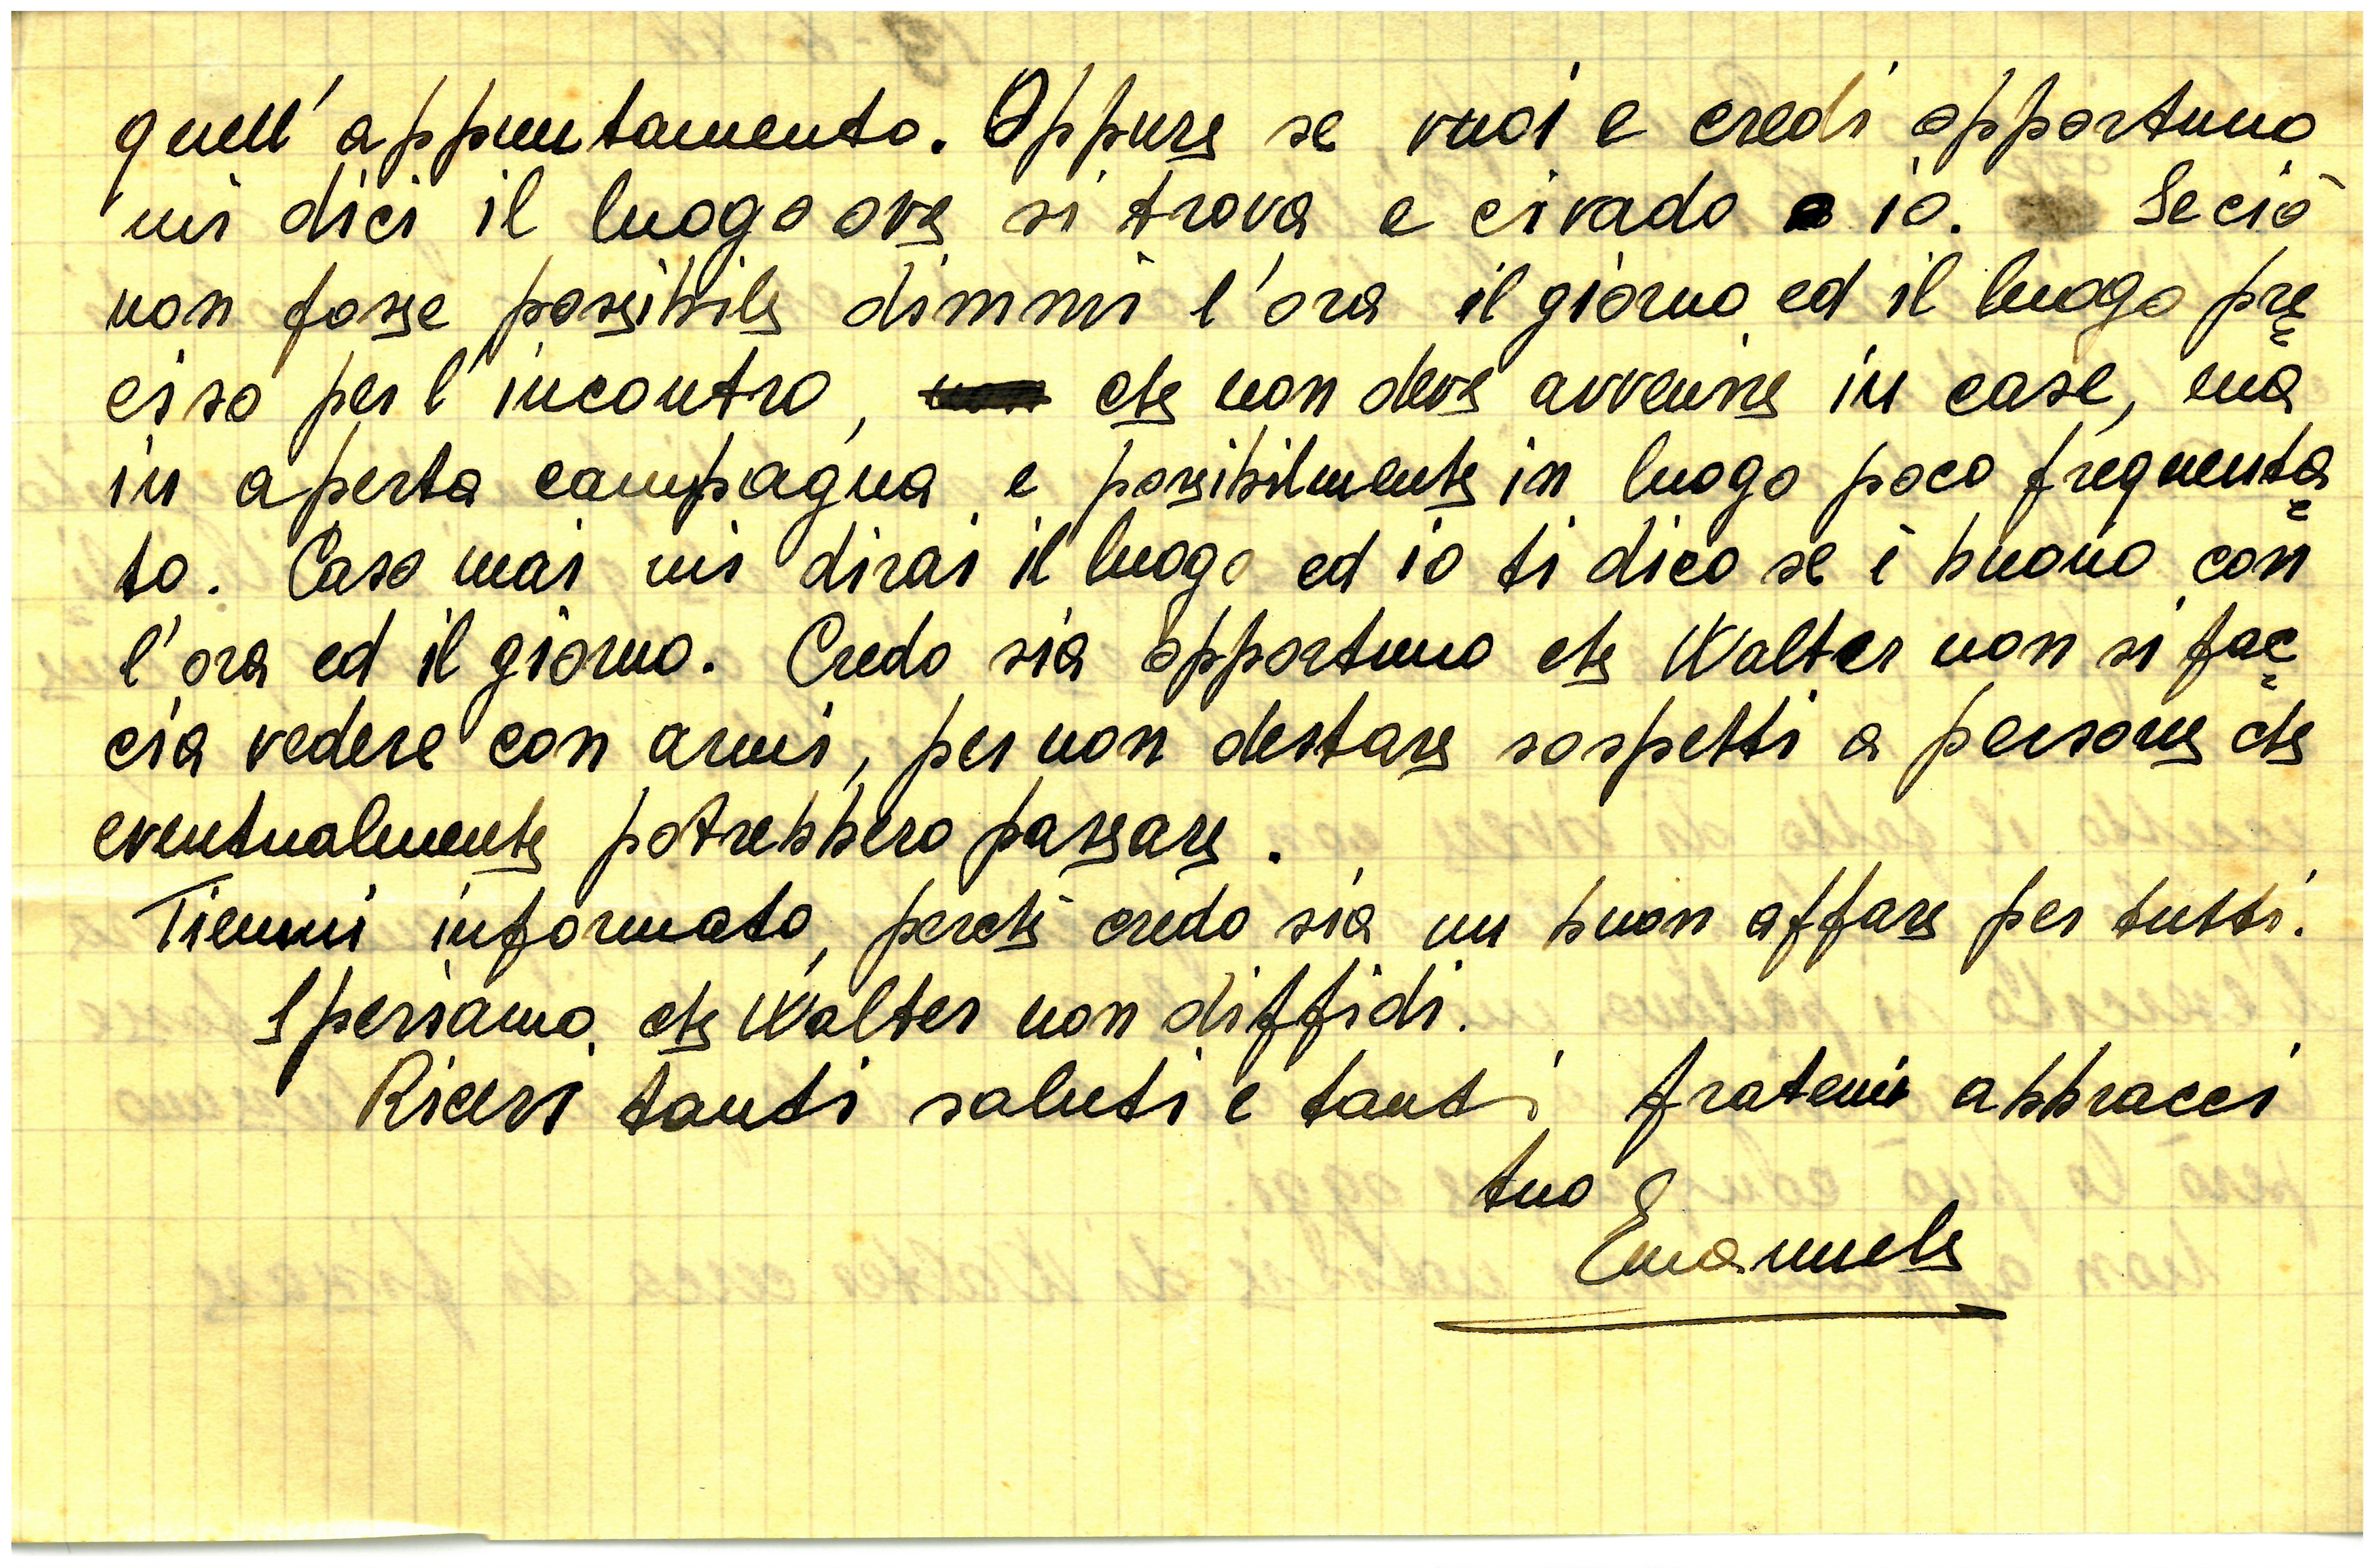 quell'appuntamento. Oppure se vuoi e credi opportuno
mi dici il luogo ove si trova e ci vado io. Se ciò
non fosse possibile dimmi l'ora il giorno ed il luogo pre
ciso per l'incontro, che non deve avvenire in case, ma
in aperta campagna e possibilmente in luogo poco frequenta
to. Caso mai mi dirai il luogo ed io ti dico se è buono con
l'ora ed il giorno. Credo sia opportuno che Walter non si fac
cia vedere con armi, per non destare sospetti a persone che
eventualmente potrebbero passare.
Tienmi informato, perchè credo sia un buon affare per tutti.
Speriamo che Walter non diffidi.
Ricevi tanti saluti e tanti fraterni abbracci
tuo
Emanuele